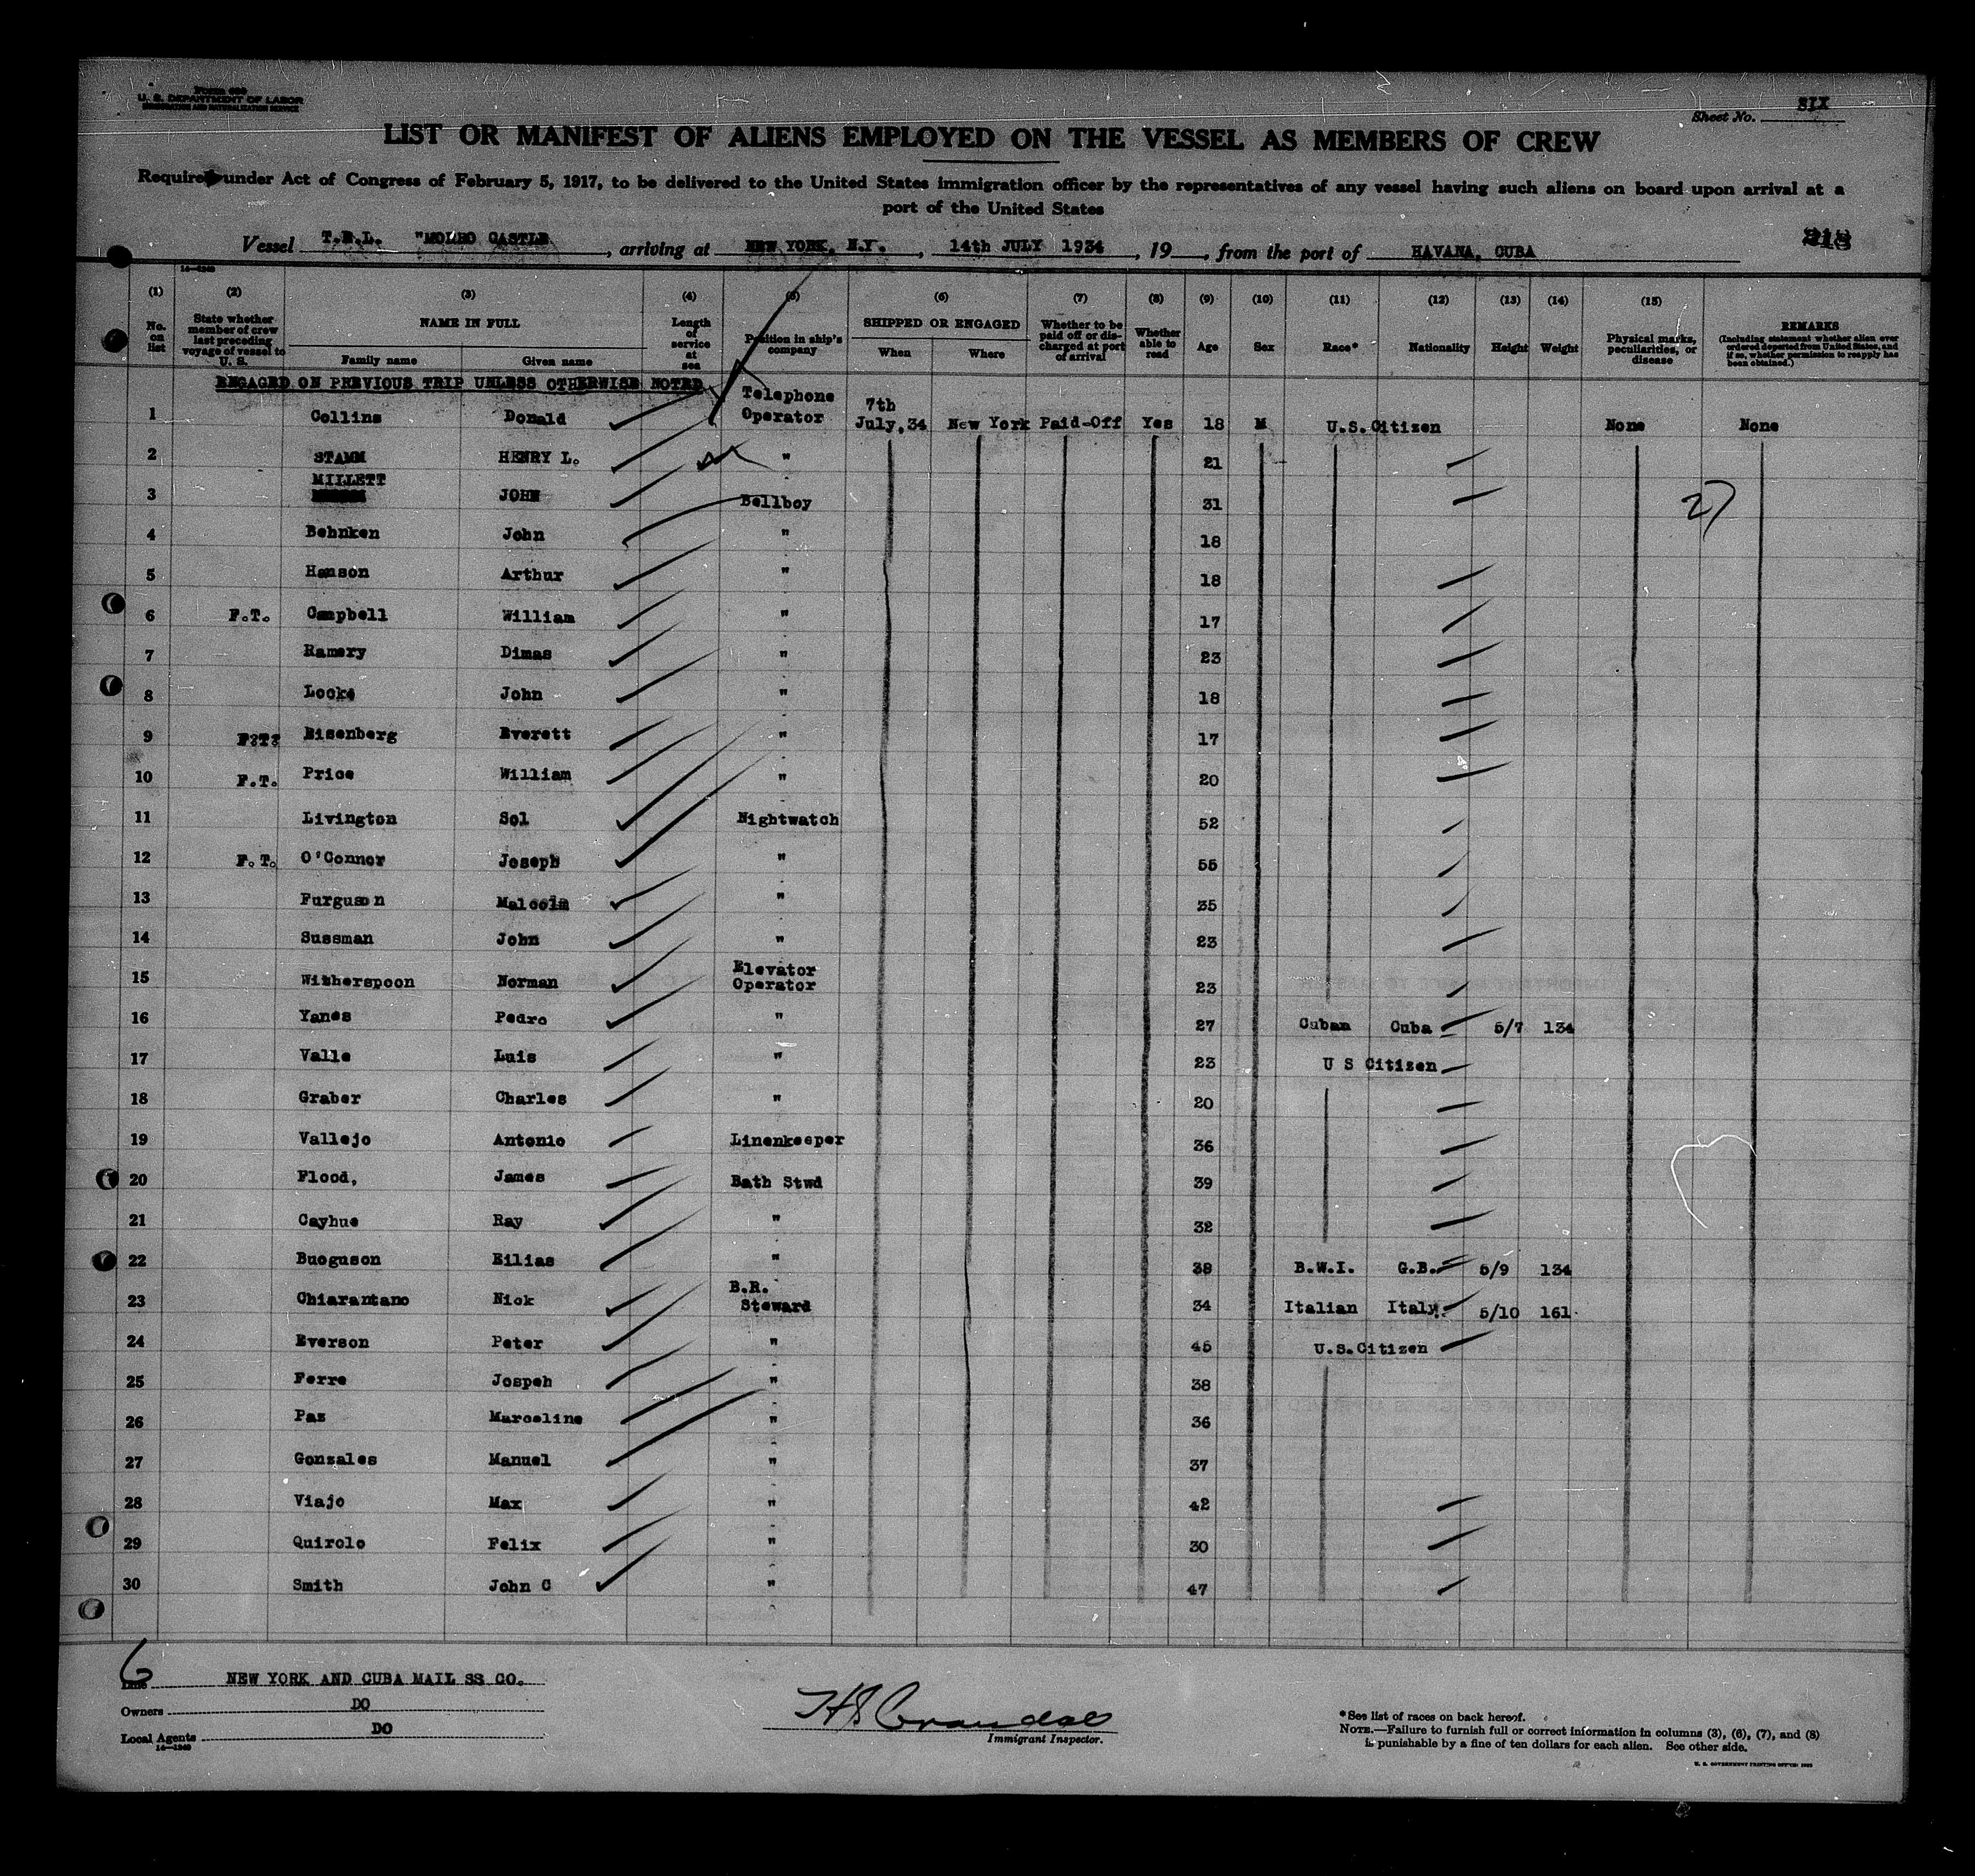 Form 689
U. S. DEPARTMENT OF LABOR
IMMIGRATION AND NATURALIZATION SERVICE
Sheet No. SIX
LIST OR MANIFEST OF ALIENS EMPLOYED ON THE VESSEL AS MEMBERS OF CREW
Required under Act of Congress of February 5, 1917, to be delivered to the United States immigration officer by the representatives of any vessel having such aliens on board upon arrival at a
port of the United States
Vessel T.E.L. "MORRO CASTLE, arriving at NEW YORK, N.Y., 14th JULY 1934, 19, from the port of HAVANA, CUBA
14—1240
(1) (2) (3) (4) (5) (6) (7) (8) (9) (10) (11) (12) (13) (14) (15)
No. on list
State whether member of crew last preceding voyage of vessel to U. S.
NAME IN FULL
Family name Given name
Length of service at sea
Position in ship's company
SHIPPED OR ENGAGED
When Where
Whether to be paid off or discharged at port of arrival
Whether able to read
Age Sex Race* Nationality Height Weight
Physical marks, peculiarities, or disease
REMARKS
(Including statement whether alien ever ordered deported from United States, and if so, whether permission to reapply has been obtained.)
ENGAGED ON PREVIOUS TRIP UNLESS OTHERWISE NOTED
1 Collins Donald Telephone Operator 7th July,34 New York Paid-Off Yes 18 M U.S.Citizen None None
2 STAMM HENRY L. " 21
3 MILLETT JOHN Bellboy 31 27
4 Behnken John " 18
5 Hanson Arthur " 18
6 F.T. Campbell William " 17
7 Ramery Dimas " 23
8 Locke John " 18
9 F?T? Eisenberg Everett " 17
10 F.T. Price William " 20
11 Livington Sol Nightwatch 52
12 F.T. O'Connor Joseph " 55
13 Furguson Malcolm " 35
14 Sussman John " 23
15 Witherspoon Norman Elevator Operator 23
16 Yanes Pedro " 27 Cuban Cuba 5/7 134
17 Valle Luis " 23 U S Citizen
18 Graber Charles " 20
19 Vallejo Antonio Linenkeeper 36
20 Flood, James Bath Stwd 39
21 Cayhue Ray " 32
22 Buoguson Eilias " 38 B.W.I. G.B. 5/9 134
23 Chiarantano Nick B.R. Steward 34 Italian Italy. 5/10 161
24 Everson Peter " 45 U.S.Citizen
25 Ferre Jospeh " 38
26 Paz Marceline " 36
27 Gonzales Manuel " 37
28 Viajo Max " 42
29 Quirolo Felix " 30
30 Smith John C " 47
6
Line NEW YORK AND CUBA MAIL SS CO.
Owners DO
Local Agents DO
14—1240
H S Crandall
Immigrant Inspector.
*See list of races on back hereof.
NOTE.—Failure to furnish full or correct information in columns (3), (6), (7), and (8)
is punishable by a fine of ten dollars for each alien. See other side.